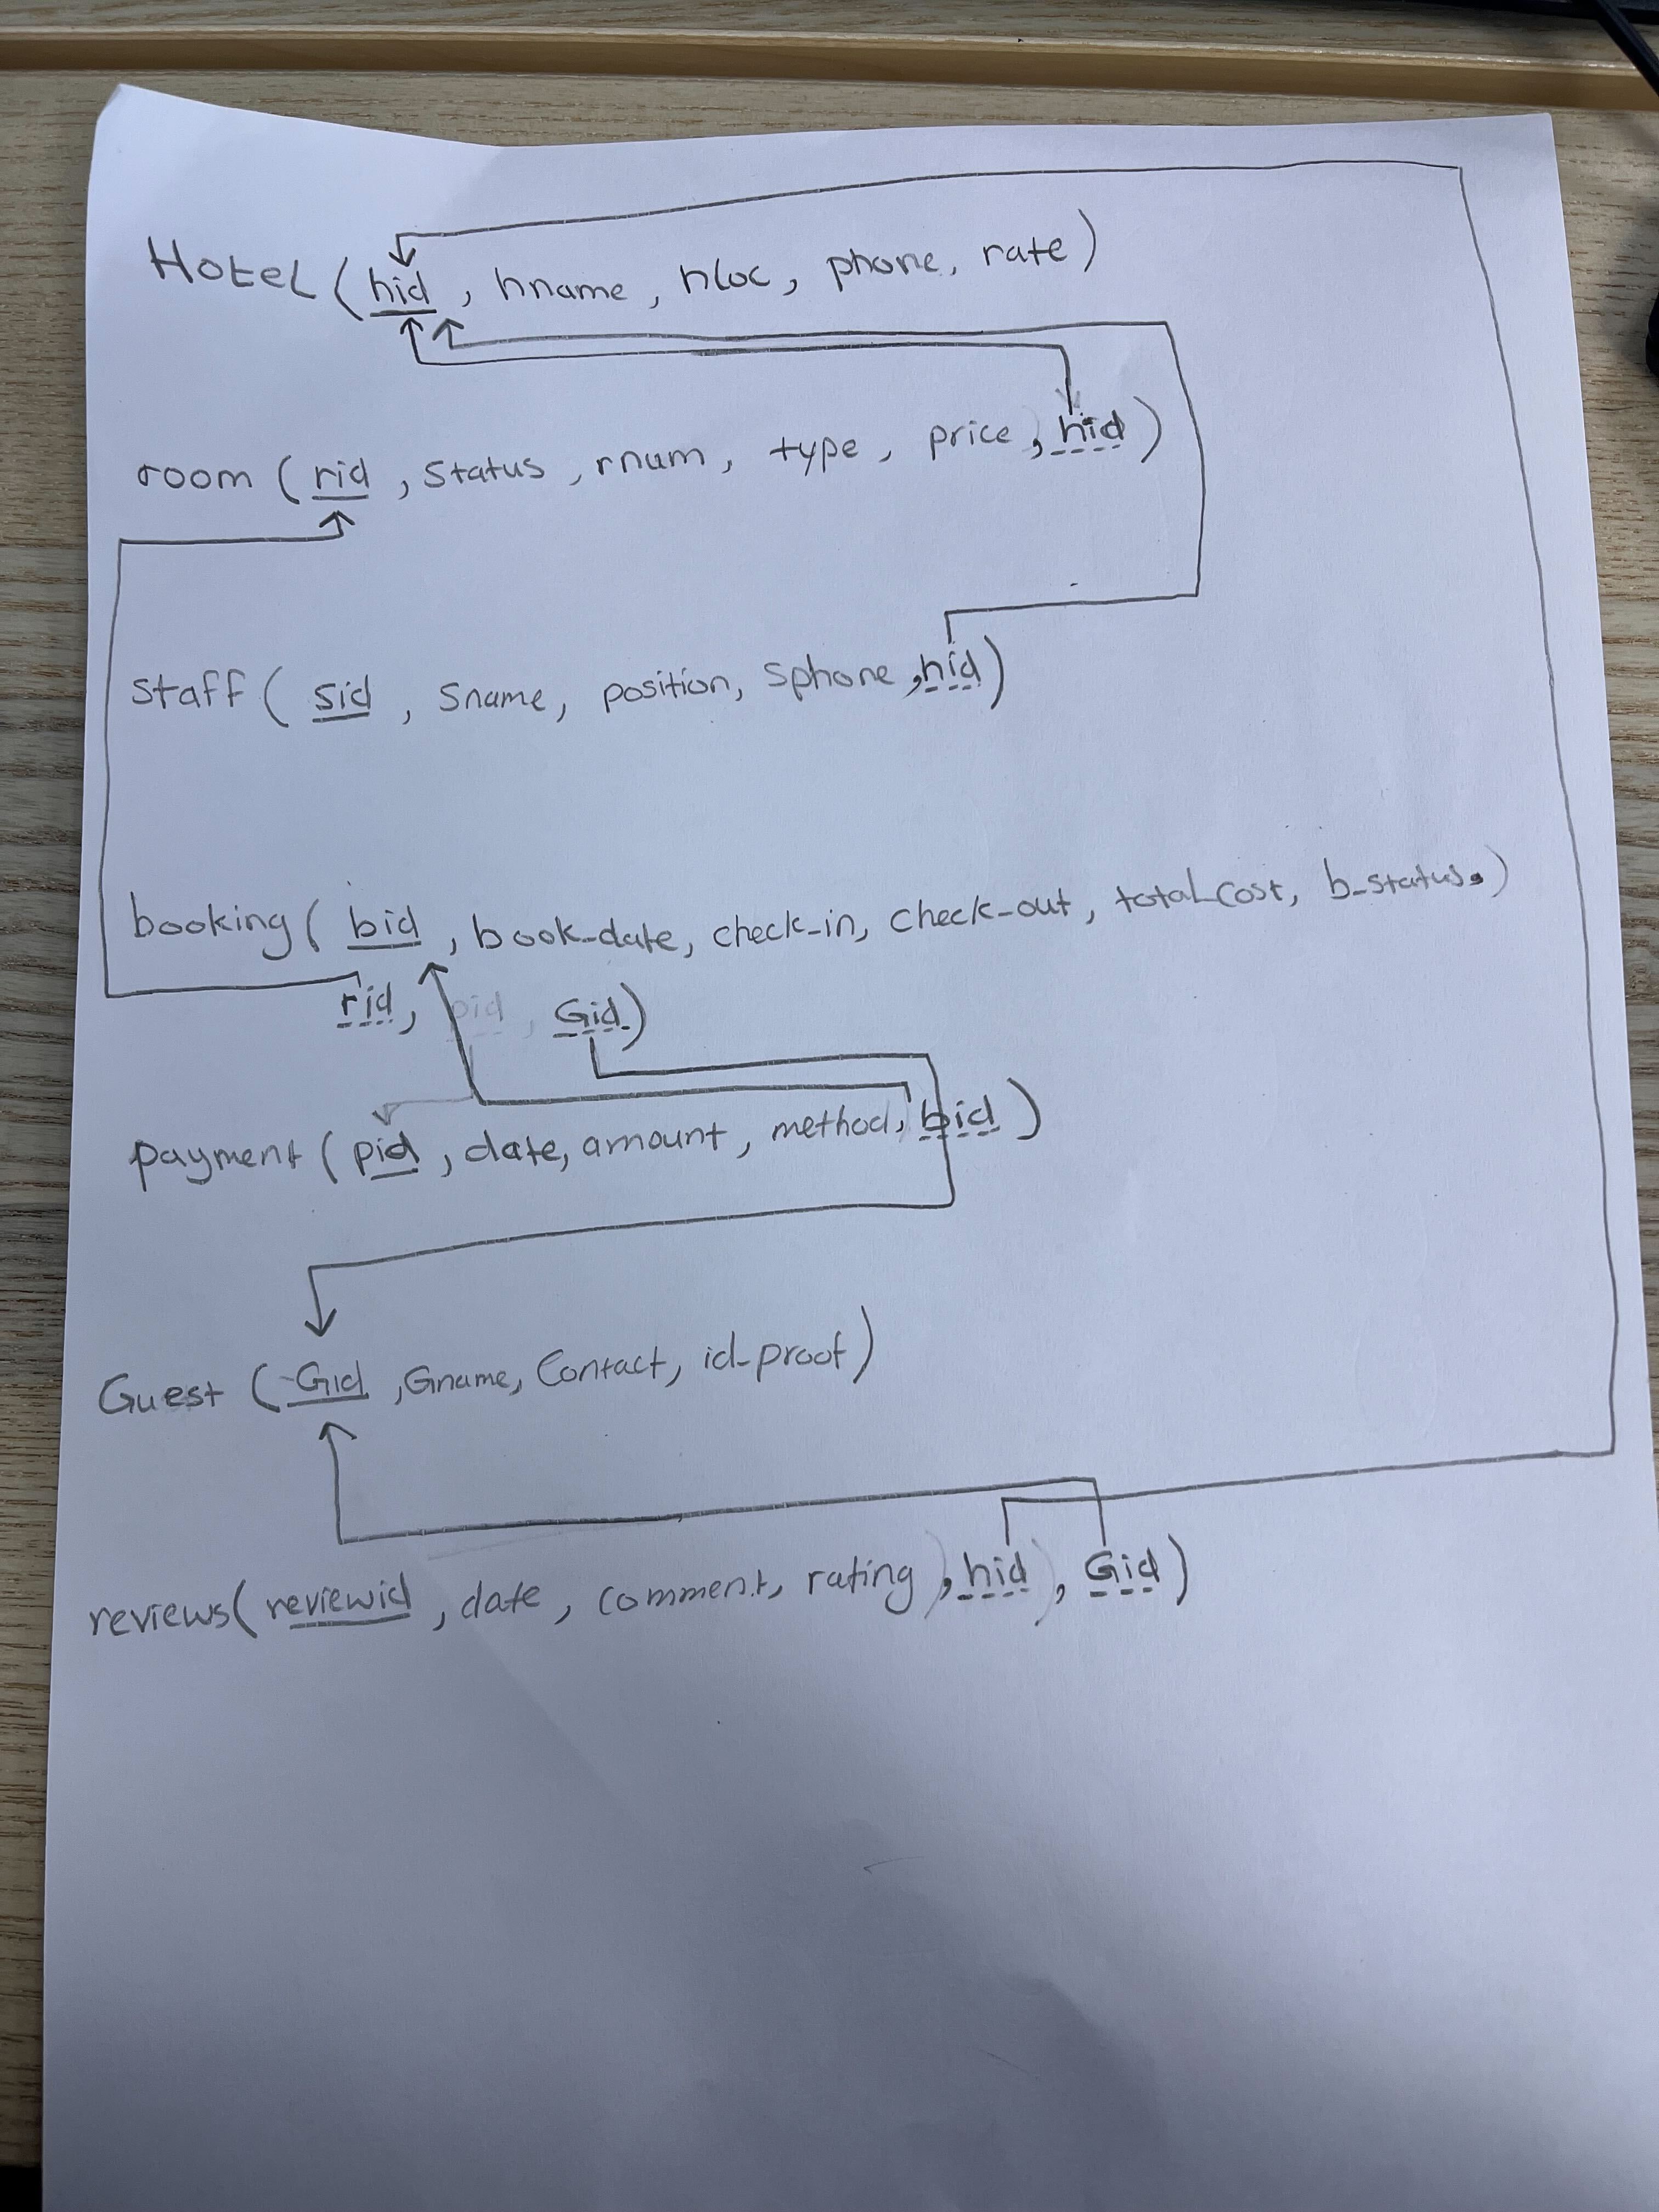 Hotel (hid, hname, hloc, phone, rate)
room (rid, status, rnum, type, price, hid)
staff (sid, sname, position, sphone, hid)
booking (bid, book-date, check-in, check-out, total-cost, b-status,)
rid, pid, Gid)
payment (pid, date, amount, method, bid)
Guest (Gid, Gname, Contact, id-proof)
reviews (reviewid, date, comment, rating), hid), Gid)